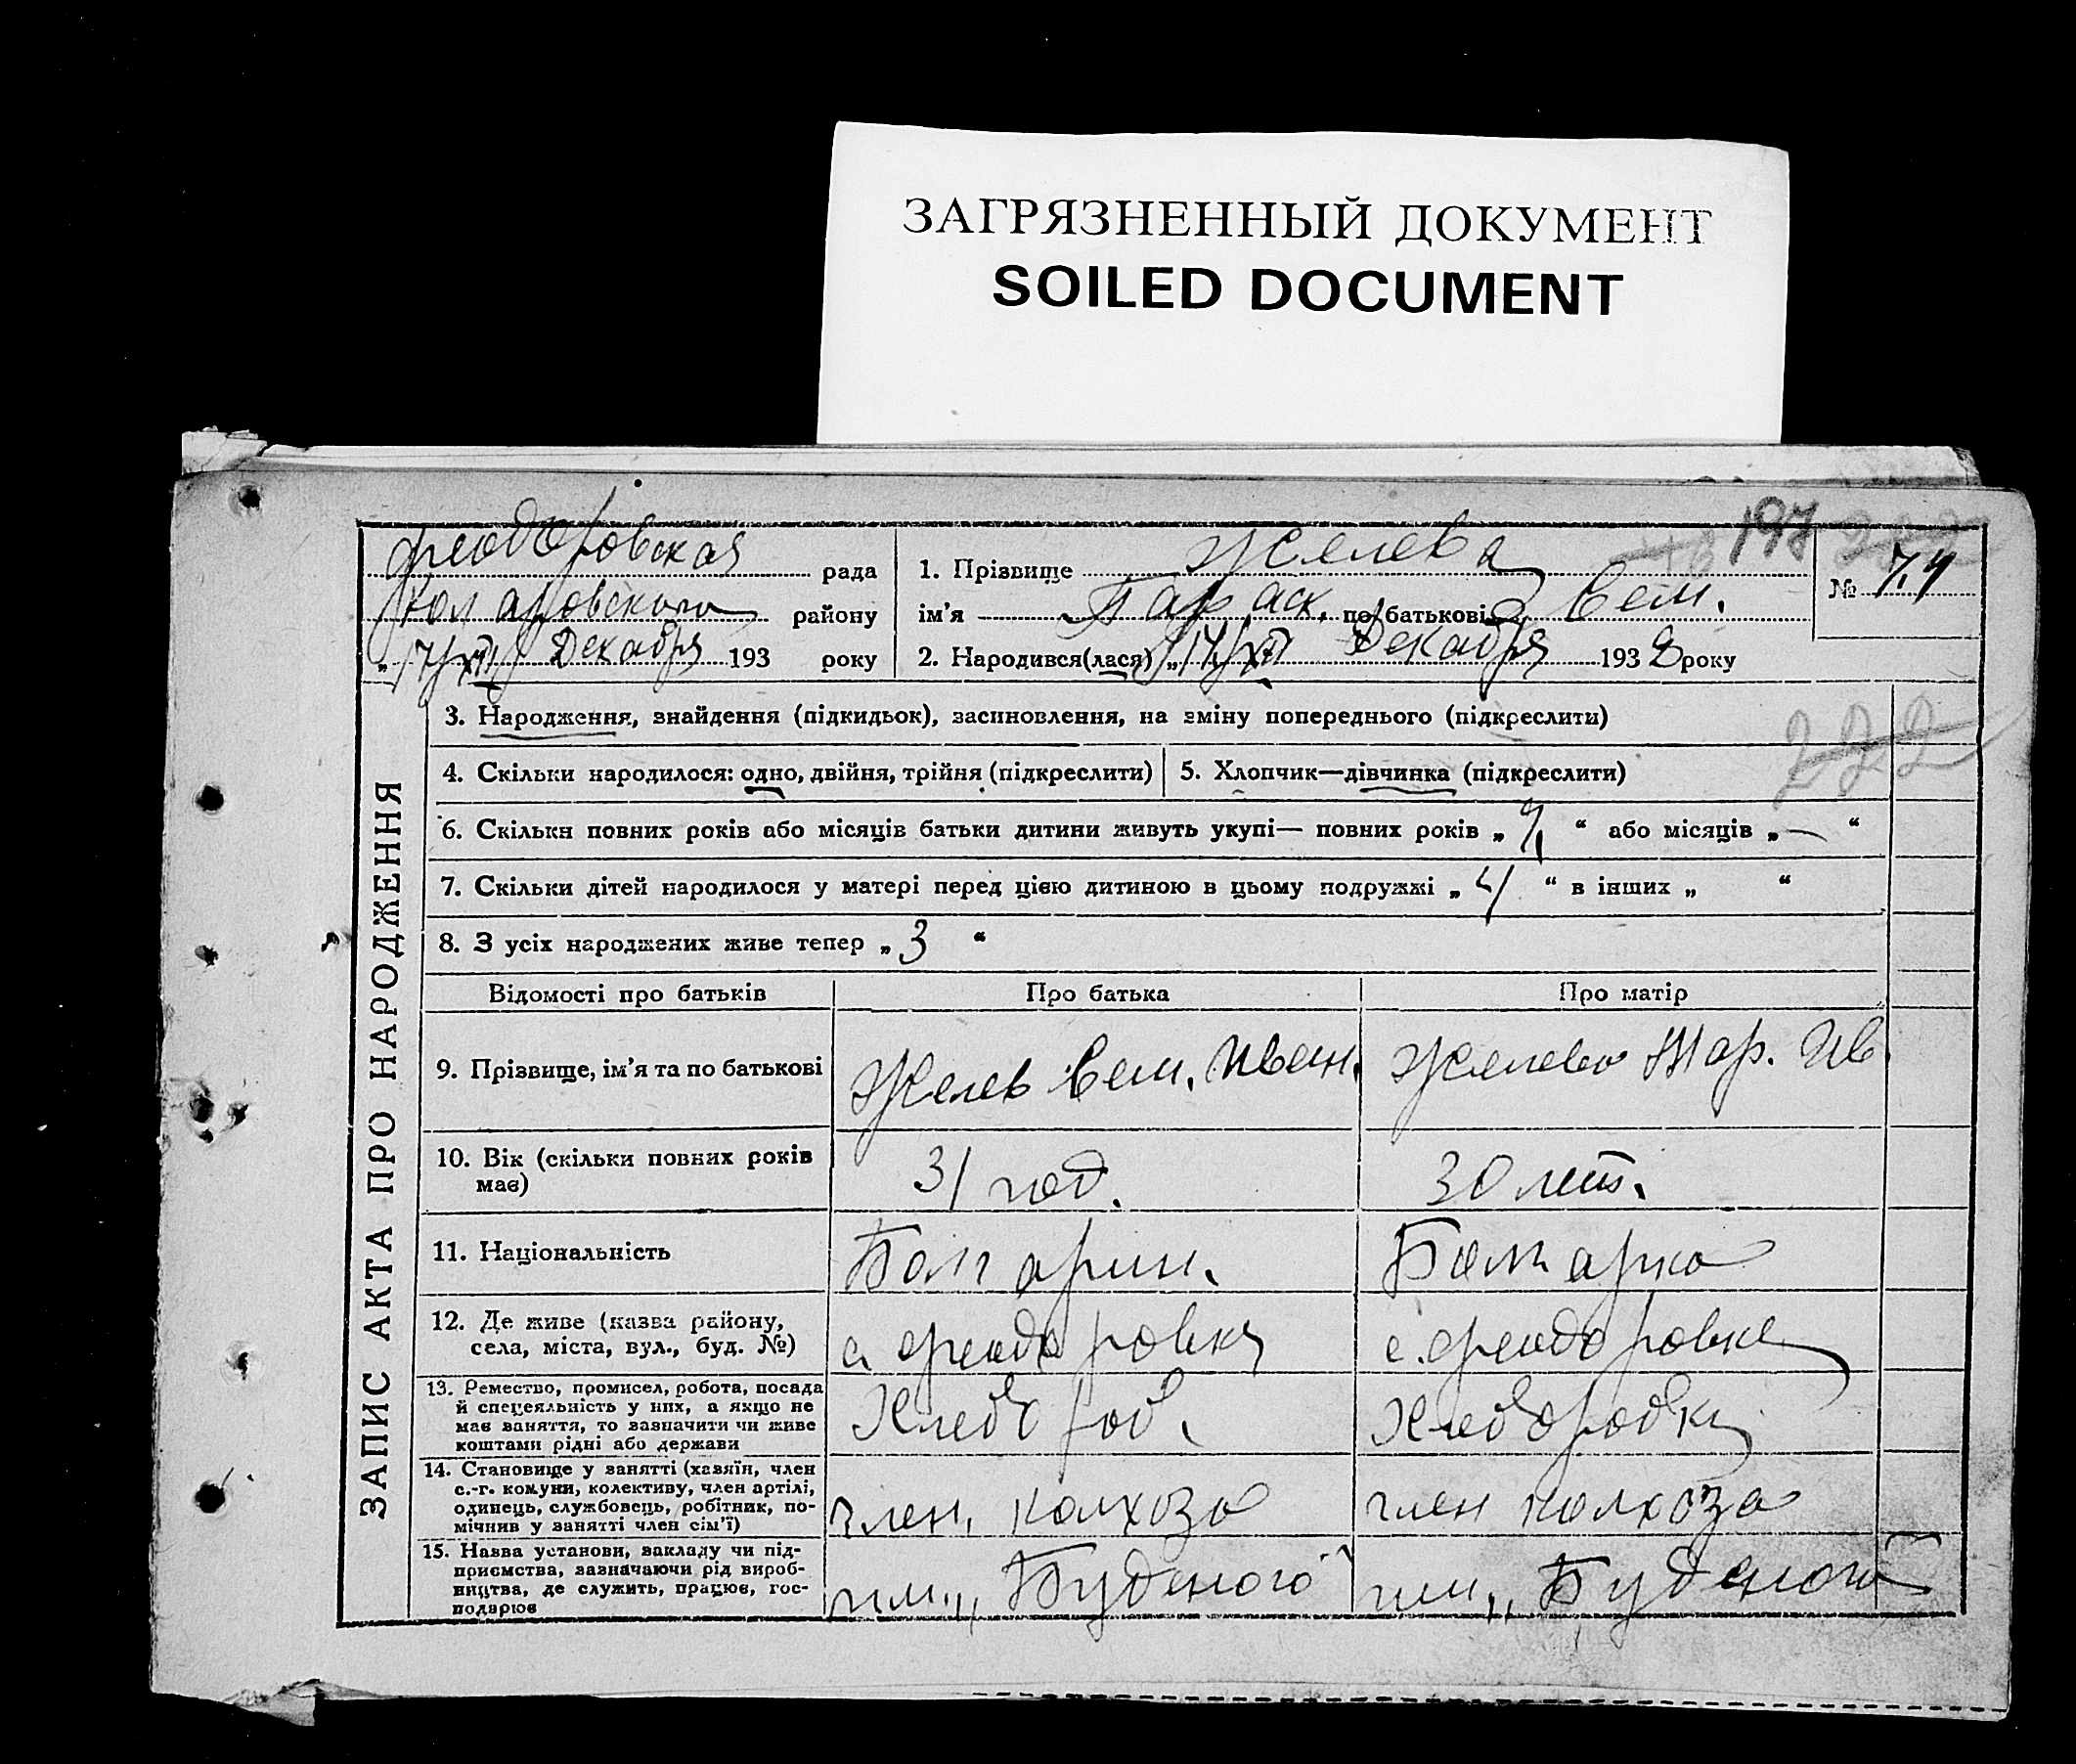 ЗАГРЯЗНЕННЫЙ ДОКУМЕНТ
SOILED DOCUMENT
197
Феодоровская рада
Коларовского району
„17/XII Декабря 193 року
1. Прізвище Желева
ім'я Параск. по батькові Вел.
2. Народився(лася) „14/XII Декабря 1938 року
№ 74
ЗАПИС АКТА ПРО НАРОДЖЕННЯ
3. Народження, знайдення (підкидьок), засиновлення, на зміну попереднього (підкреслити)
222
4. Скільки народилося: одно, двійня, трійня (підкреслити)
5. Хлопчик—дівчинка (підкреслити)
6. Скільки повних років або місяців батьки дитини живуть укупі— повних років „ “ або місяців „ — “
7. Скільки дітей народилося у матері перед цією дитиною в цьому подружжі „ 4 “ в інших „ “
8. З усіх народжених живе тепер „ 3 “
Відомості про батьків
Про батька
Про матір
9. Прізвище, ім'я та по батькові
Желев Вел. Иван.
Желева Мар. Ив
10. Вік (скільки повних років
має)
31 год.
30 лет.
11. Національність
Болгарин.
Болгарка
12. Де живе (назва району,
села, міста, вул., буд. №)
с. Феодоровка
с. Феодоровка
13. Ремество, промисел, робота, посада
й спецеяльність у них, а якщо не
має заняття, то зазначити чи живе
коштами рідні або держави
Хлебороб.
Хлеборобка
14. Становище у занятті (хазяїн, член
с.-г. комуни, колективу, член артілі,
одинець, службовець, робітник, по-
мічнив у занятті член сім'ї)
член. колхоза
член колхоза
15. Назва установи, закладу чи під-
приємства, зазначаючи рід вироб-
ництва, де служить, працює, гос-
подарює
им. „Буденого
им. „Буденого